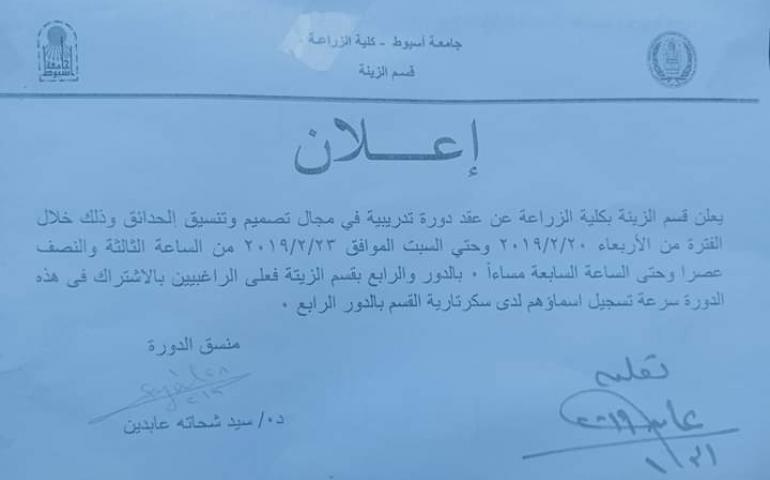 جامعة أسيوط - كلية الزراعة
قسم الزينة
جامعة أسيوط
إعـــلان
يعلن قسم الزينة بكلية الزراعة عن عقد دورة تدريبية في مجال تصميم وتنسيق الحدائق وذلك خلال
الفترة من الأربعاء ٢٠١٩/٢/٢٠ وحتي السبت الموافق ٢٠١٩/٢/٢٣ من الساعة الثالثة والنصف
عصرا وحتى الساعة السابعة مساءاً ٠ بالدور والرابع بقسم الزينة فعلى الراغبيين بالاشتراك فى هذه
الدورة سرعة تسجيل اسماؤهم لدى سكرتارية القسم بالدور الرابع ٠
منسق الدورة
د٠/ سيد شحاته عابدين
١/٣١